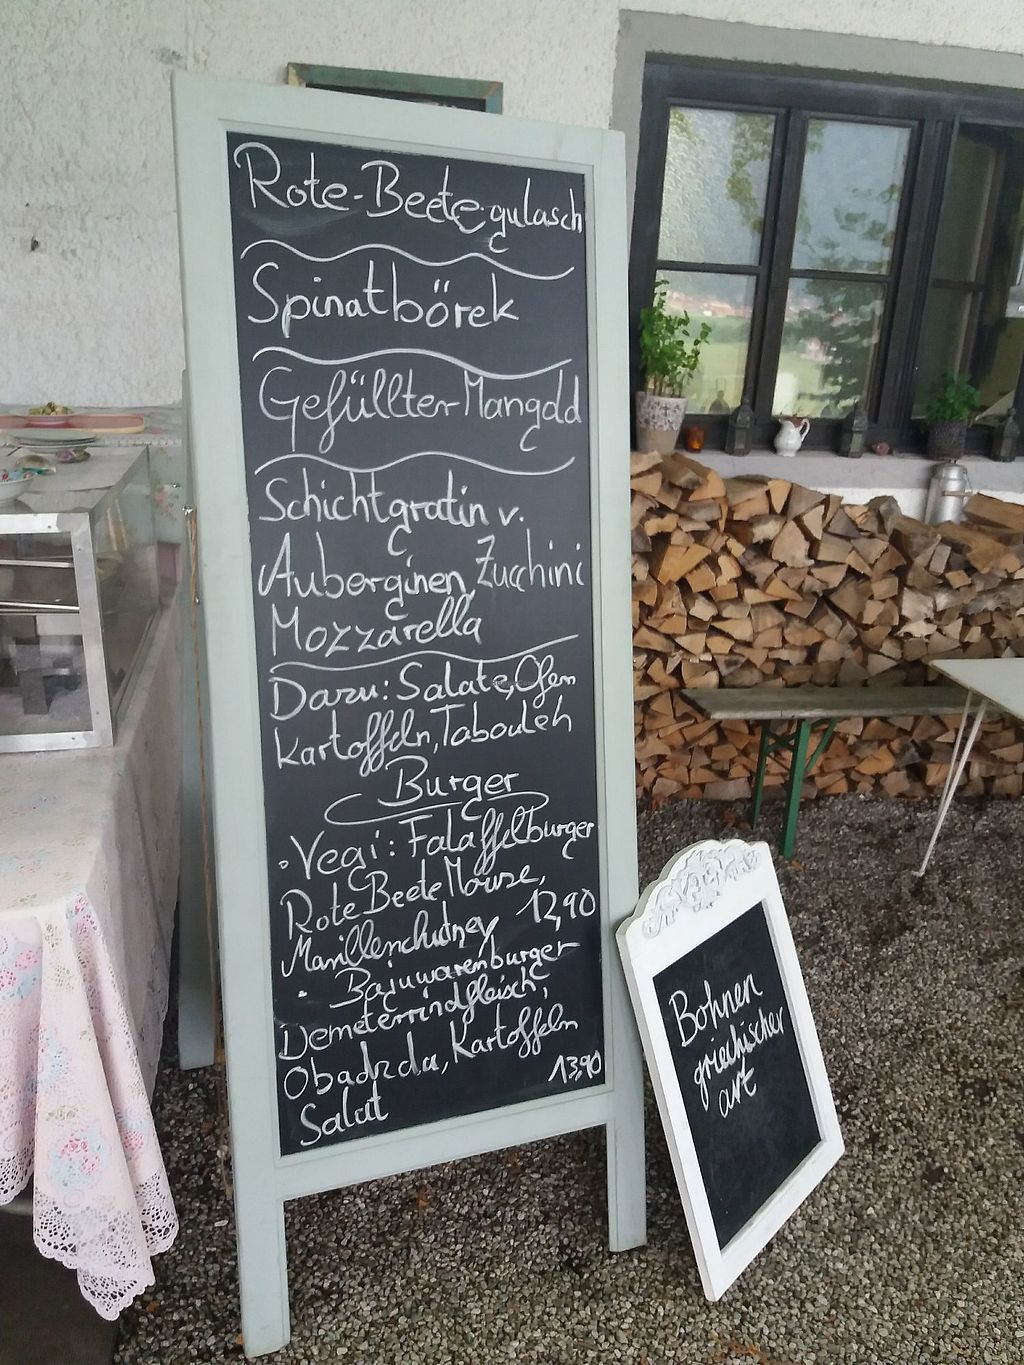 Rote-Beete-gulasch
Spinatbörek
Gefüllter Mangold
Schichtgratin v.
Auberginen, Zucchini
Mozzarella
Dazu: Salate, Ofen
Kartoffeln, Tabouleh
Burger
· Vegi: Falaffelburger
Rote Beete Mouse,
Marillenchutney 12,90
· Bajuwarenburger
Demeterrindfleisch,
Obadzda, Kartoffeln
Salat 13,90
Bohnen
griechischer
art